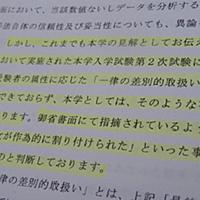 面において、当該数値ないしデータを分析する
方法自体の信頼性及び妥当性についても、異論
しかし、これまでも本学の見解としてお伝え
おいて実施された本学入学試験第2次試験に
受験者の属性に応じた「一律の差別的取扱い」
できておらず、本学としては、そのような
ります。御省書面にて指摘されているよう
が作為的に割り付けられた」といった事
のと判断しております。
律の差別的取扱い」とは、上記「